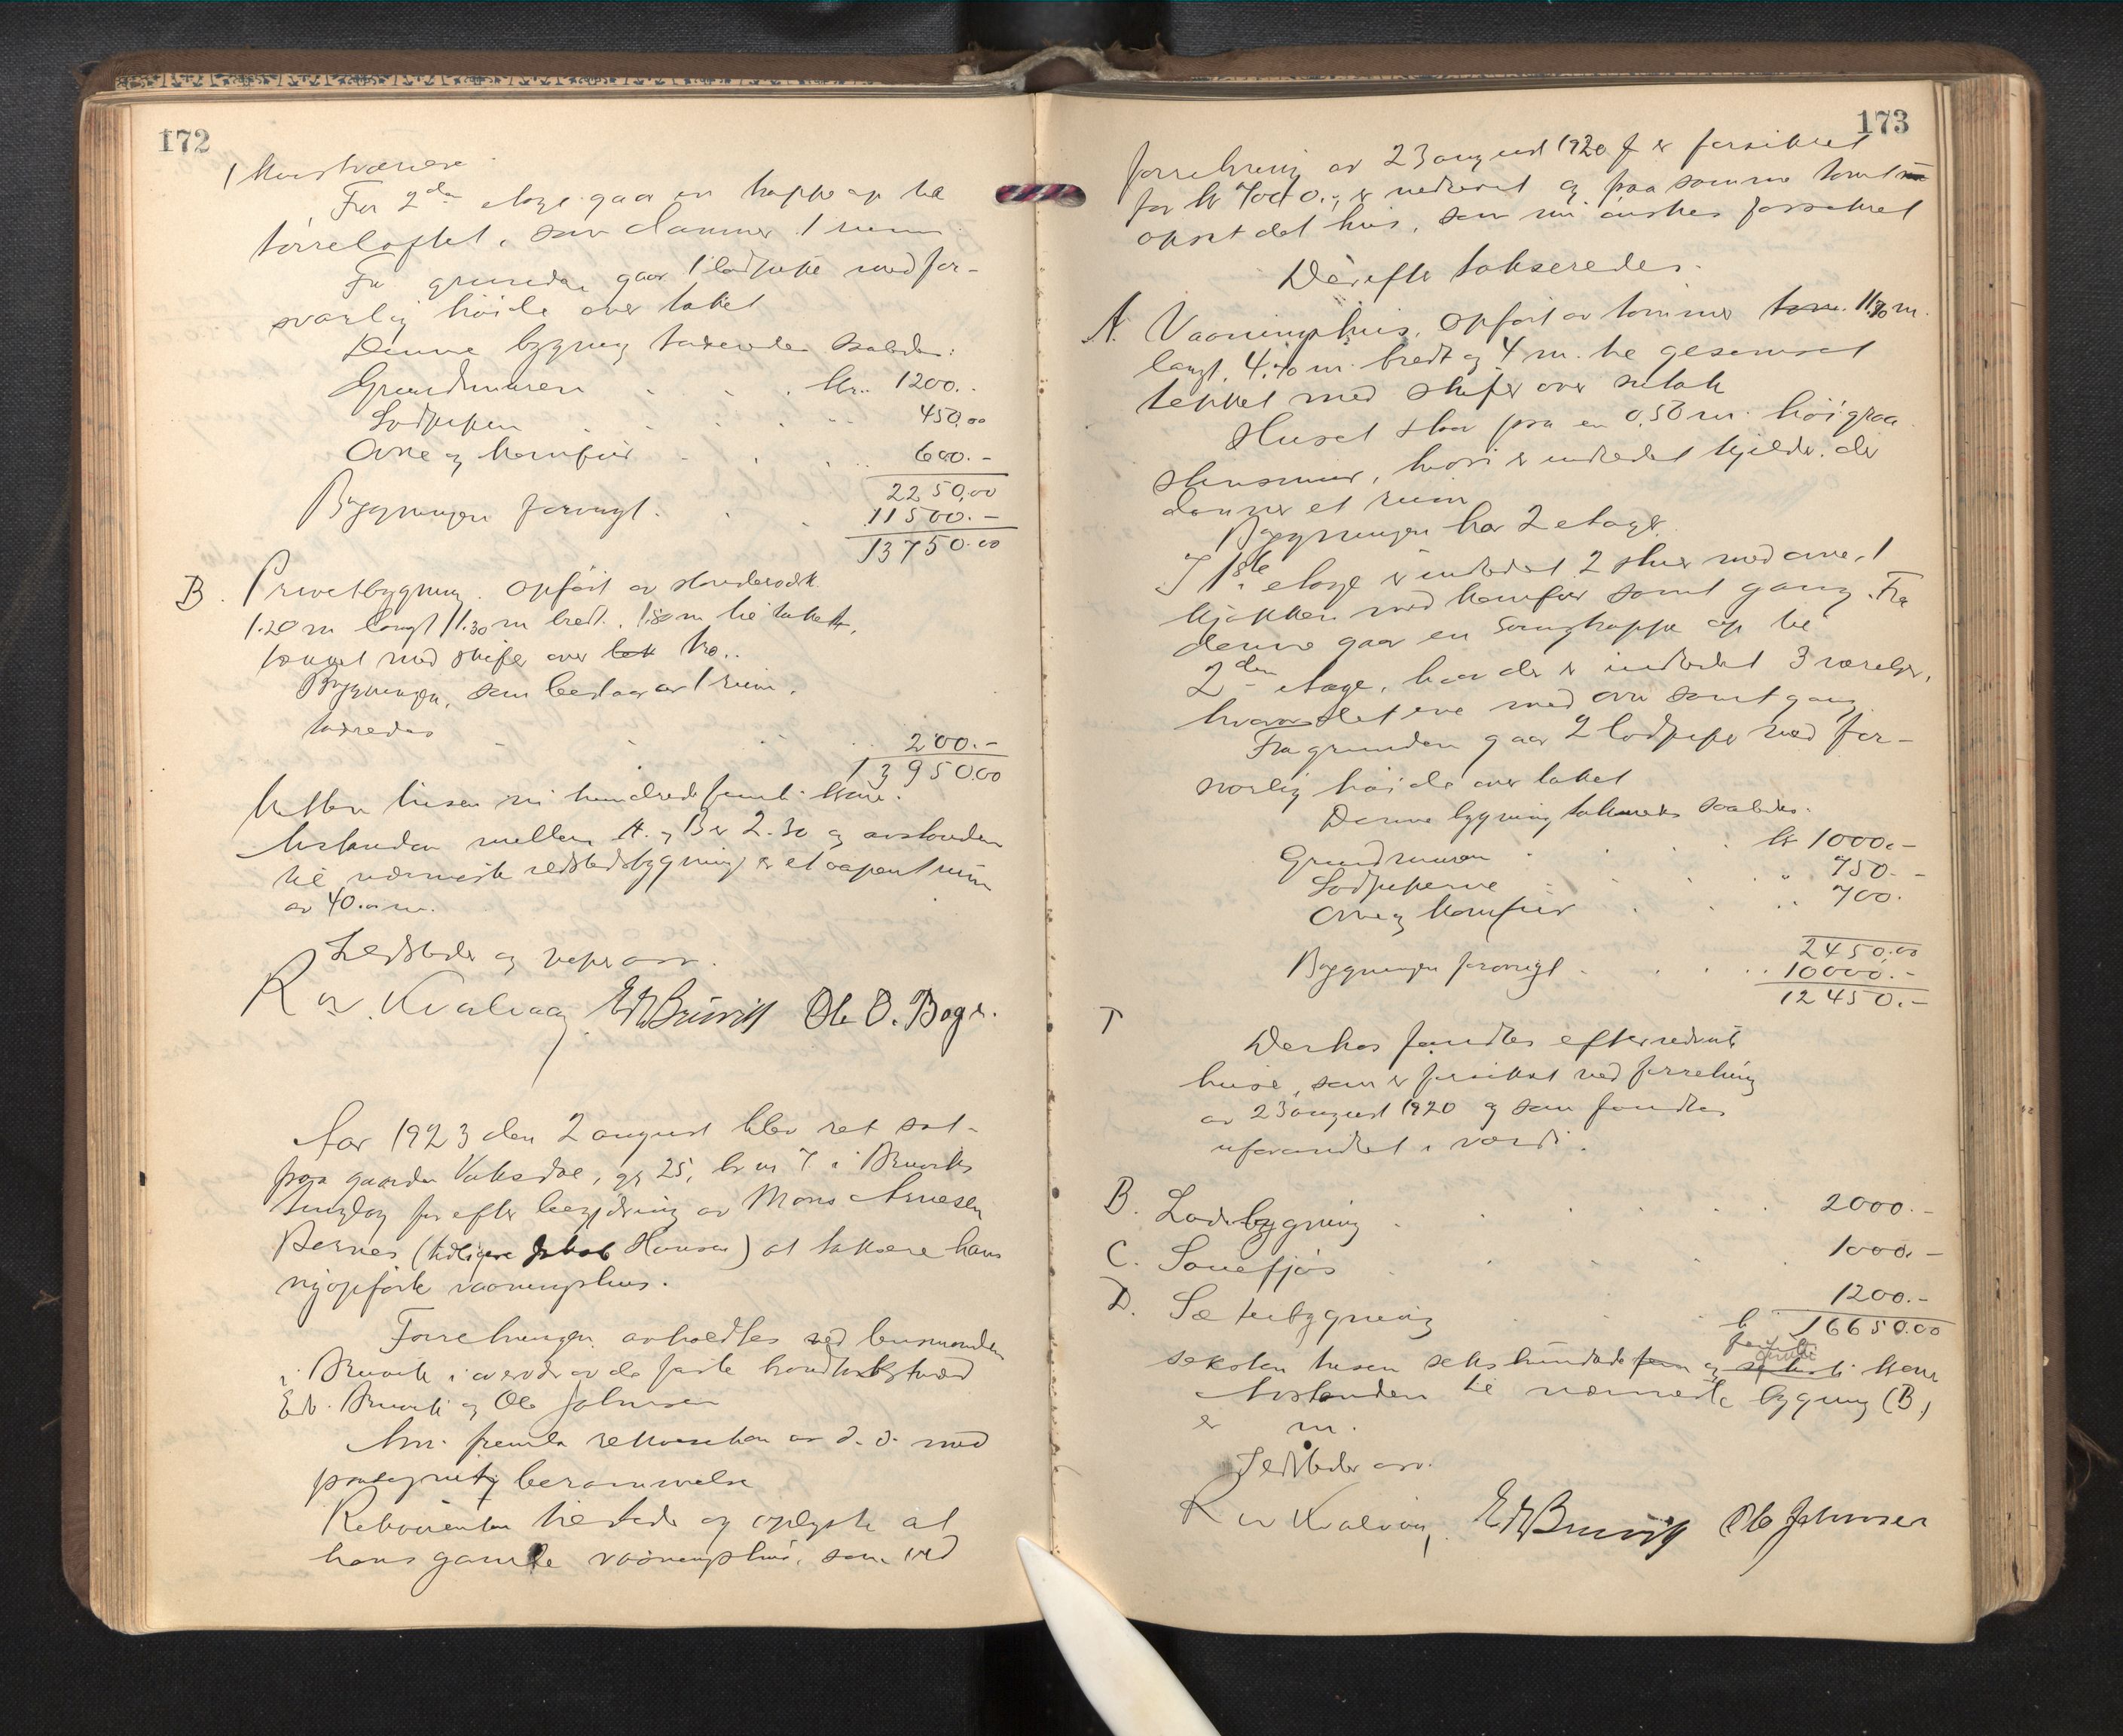 172
1
Fra 2den etage gaar en trappe op til
tørreloftet, som danner 1 rum.
Fra grunden gaar 1 lodpipe med for-
svarlig høide over taket
Denne bygning taxeredes saaledes:
Grundmuren . . . kr. 1200.-
Lodpipen . . . 450,00
Ovne og komfür . . . 600.-
2250,00
Bygningen forøvrigt . . . 11500.-
13750.00
B. Privetbygning. opført av
1.20 m langt 1.30 m bredt. 1.80 m til taket,
tækket med skifer over tak tro..
Bygningen, som bestaar av 1 rum,
taxeredes . . . 200.-
13950.00
tretten tusen ni hundrede femti kroner.
Avstanden mellem A. og B er 2.30 og avstanden
til nærmeste ildstedsbygning er et aapent rum
av 40 m.
Ildsteder og piper
R Kvalvaag EdBruvik Ole O. Boge.
Aar 1923 den 2 august blev ret sat
paa gaarden Vaksdal, gr 25, br nr 7 i Bruviks
tinglag for efter begjæring av Mons Arnesen
Pernes (tidligere Jakob Hansen) at taksere hans
nyopførte vaaningshus.
Forretningen avholdtes ved lensmanden
i Bruvik i overvær av de faste
Ed. Bruvik og Ole Johnsen
Adm. fremla rekvisition av d. d. med
paategnet berammelse
Rekvirenten tilstede og oplyste at
hans gamle vaaningshus, som ved
173
forretning av 23 august 1920 er forsikret
for kr 7000.- er nedrevet og paa samme tomt
opsat det hus, som nu ønskes forsikret
Derefter takseredes.
A. Vaaningshus, opført av tømmer 11,70 m.
langt, 4.70 m. bredt og 4 m. til gesimset
tekket med skifer over sutak
Huset staar paa en 0,50 m. høi graa
stensmur, hvori er indredet kjelder, der
danner et rum
Bygningen har 2 etager.
I 1ste etage er indredet 2 stuer med ovne, 1
kjøkken med komfur samt gang. Fra
denne gaar en svingtrappe op til
2den etage, hvor der er indredet 3 værelser,
hvorav det ene med ovn samt gang
Fra grunden gaar 2 lodpiper med for-
svarlig høide over taket
Denne bygning takseredes saaledes.
Grundmuren . . . kr 1000.-
Lodpiperne . . . " 750.-
Ovne og komfur . . . 700.
2450.00
Bygningen forøvrigt . . . 10000.-
12450.-
Derhos fandtes efternævnte
huse, som er forsikret ved forretning
av 23 august 1920 og som fandtes
uforandret i værdi.
B. Ladebygning . . . 2000.-
C. Sauefjøs . . . 1000.-
D. Sæterbygning . . . 1200.-
kr 16650.00
femti
seksten tusen sekshundrede og kroner
Avstanden til nærmeste bygning (B)
er m.
Ildsteder
R Kvalvaag, EdBruvik Ole Johnsen